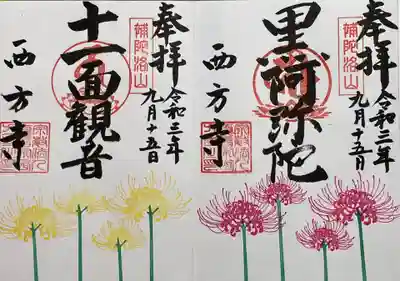 奉拝
補陀洛山
令和三年
九月十五日
阿弥陀
西方寺
奉拝
補陀洛山
令和三年
九月十五日
十一面観音
西方寺